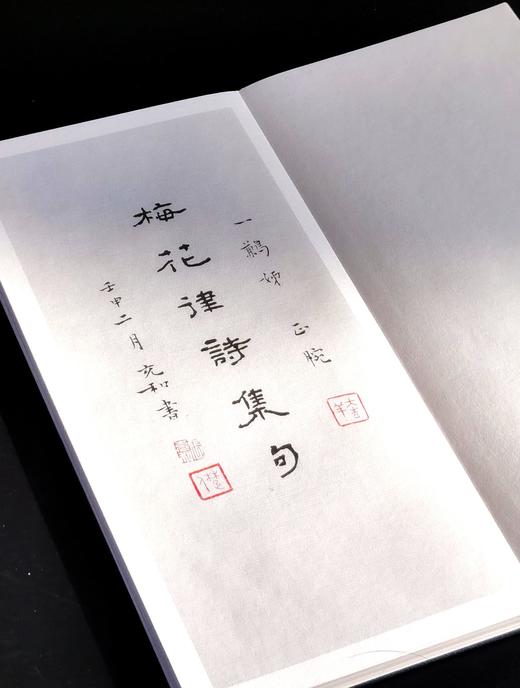 一鹣姊 正腕
梅花律詩集句
壬申二月 充和書